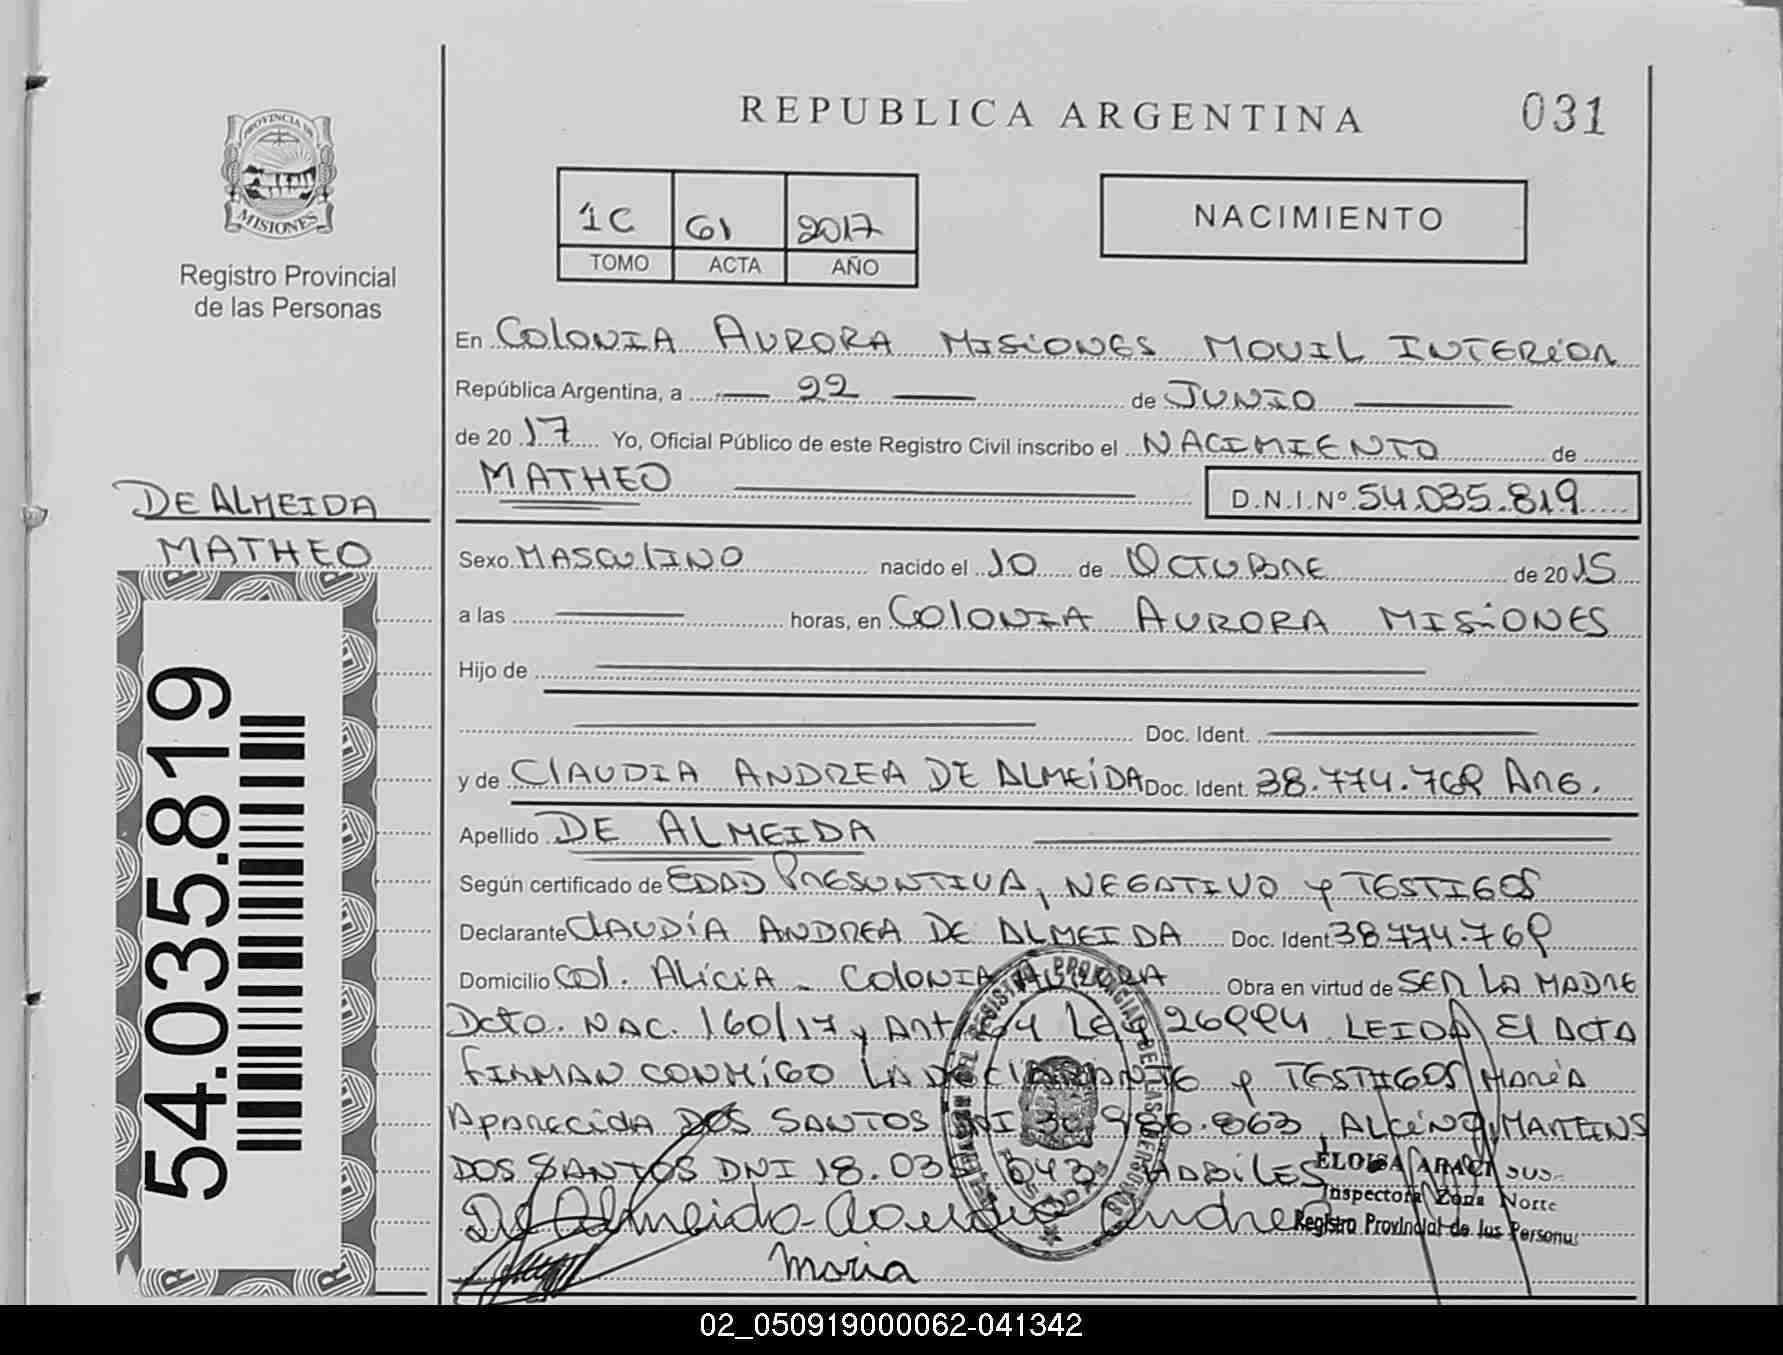 REPUBLICA ARGENTINA
031
PROVINCIA DE
MISIONES
Registro Provincial
de las Personas
1C 61 2017
TOMO ACTA AÑO
NACIMIENTO
En COLONIA AURORA MISIONES MOVIL INTERIOR
República Argentina, a 22 de JUNIO
de 2017 Yo, Oficial Público de este Registro Civil inscribo el NACIMIENTO de
MATHEO
D.N.I.Nº 54.035.819
DE ALMEIDA
MATHEO
Sexo MASCULINO nacido el 10 de OCTUBRE de 2015
a las horas, en COLONIA AURORA MISIONES
Hijo de
Doc. Ident.
y de CLAUDIA ANDREA DE ALMEIDA Doc. Ident. 38.774.769 ARG.
Apellido DE ALMEIDA
Según certificado de EDAD PRESUNTIVA, NEGATIVO y TESTIGOS
Declarante CLAUDIA ANDREA DE ALMEIDA Doc. Ident 38.774.769
Domicilio COL. ALICIA - COLONIA AURORA Obra en virtud de SER LA MADRE
Dcto. NAC. 160/17 y Art 64 Ley 26994 LEIDA El ACTA
FIRMAN CONMIGO LA DECLARANTE y TESTIGOS MARIA
APARECIDA DOS SANTOS DNI 863, ALCINO MARTINS
DOS SANTOS DNI 18.03 043 HABILES
De Almeida Claudia Andrea
Maria
ELOISA ARACI
Inspectora Zona Norte
Registro Provincial de las Personas
54.035.819
02_050919000062-041342